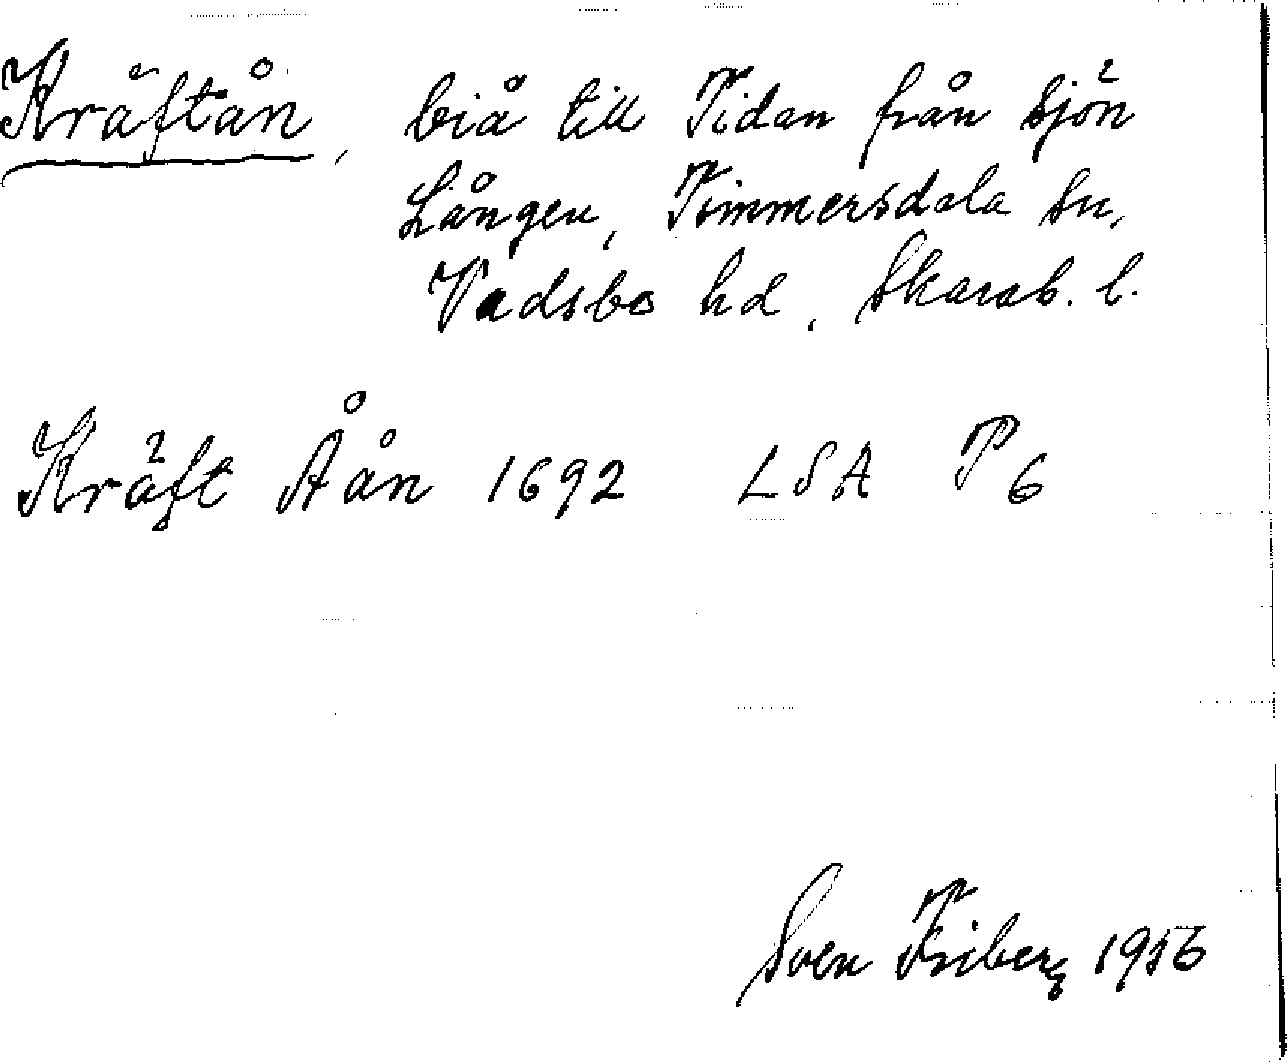 Kräftån, biå till Tidan från sjön
Lången, Timmersdala sn,
Vadsbo hd, Skarab. l.
Kräft Åån 1692 LSA P6
Sven Friberg 1956